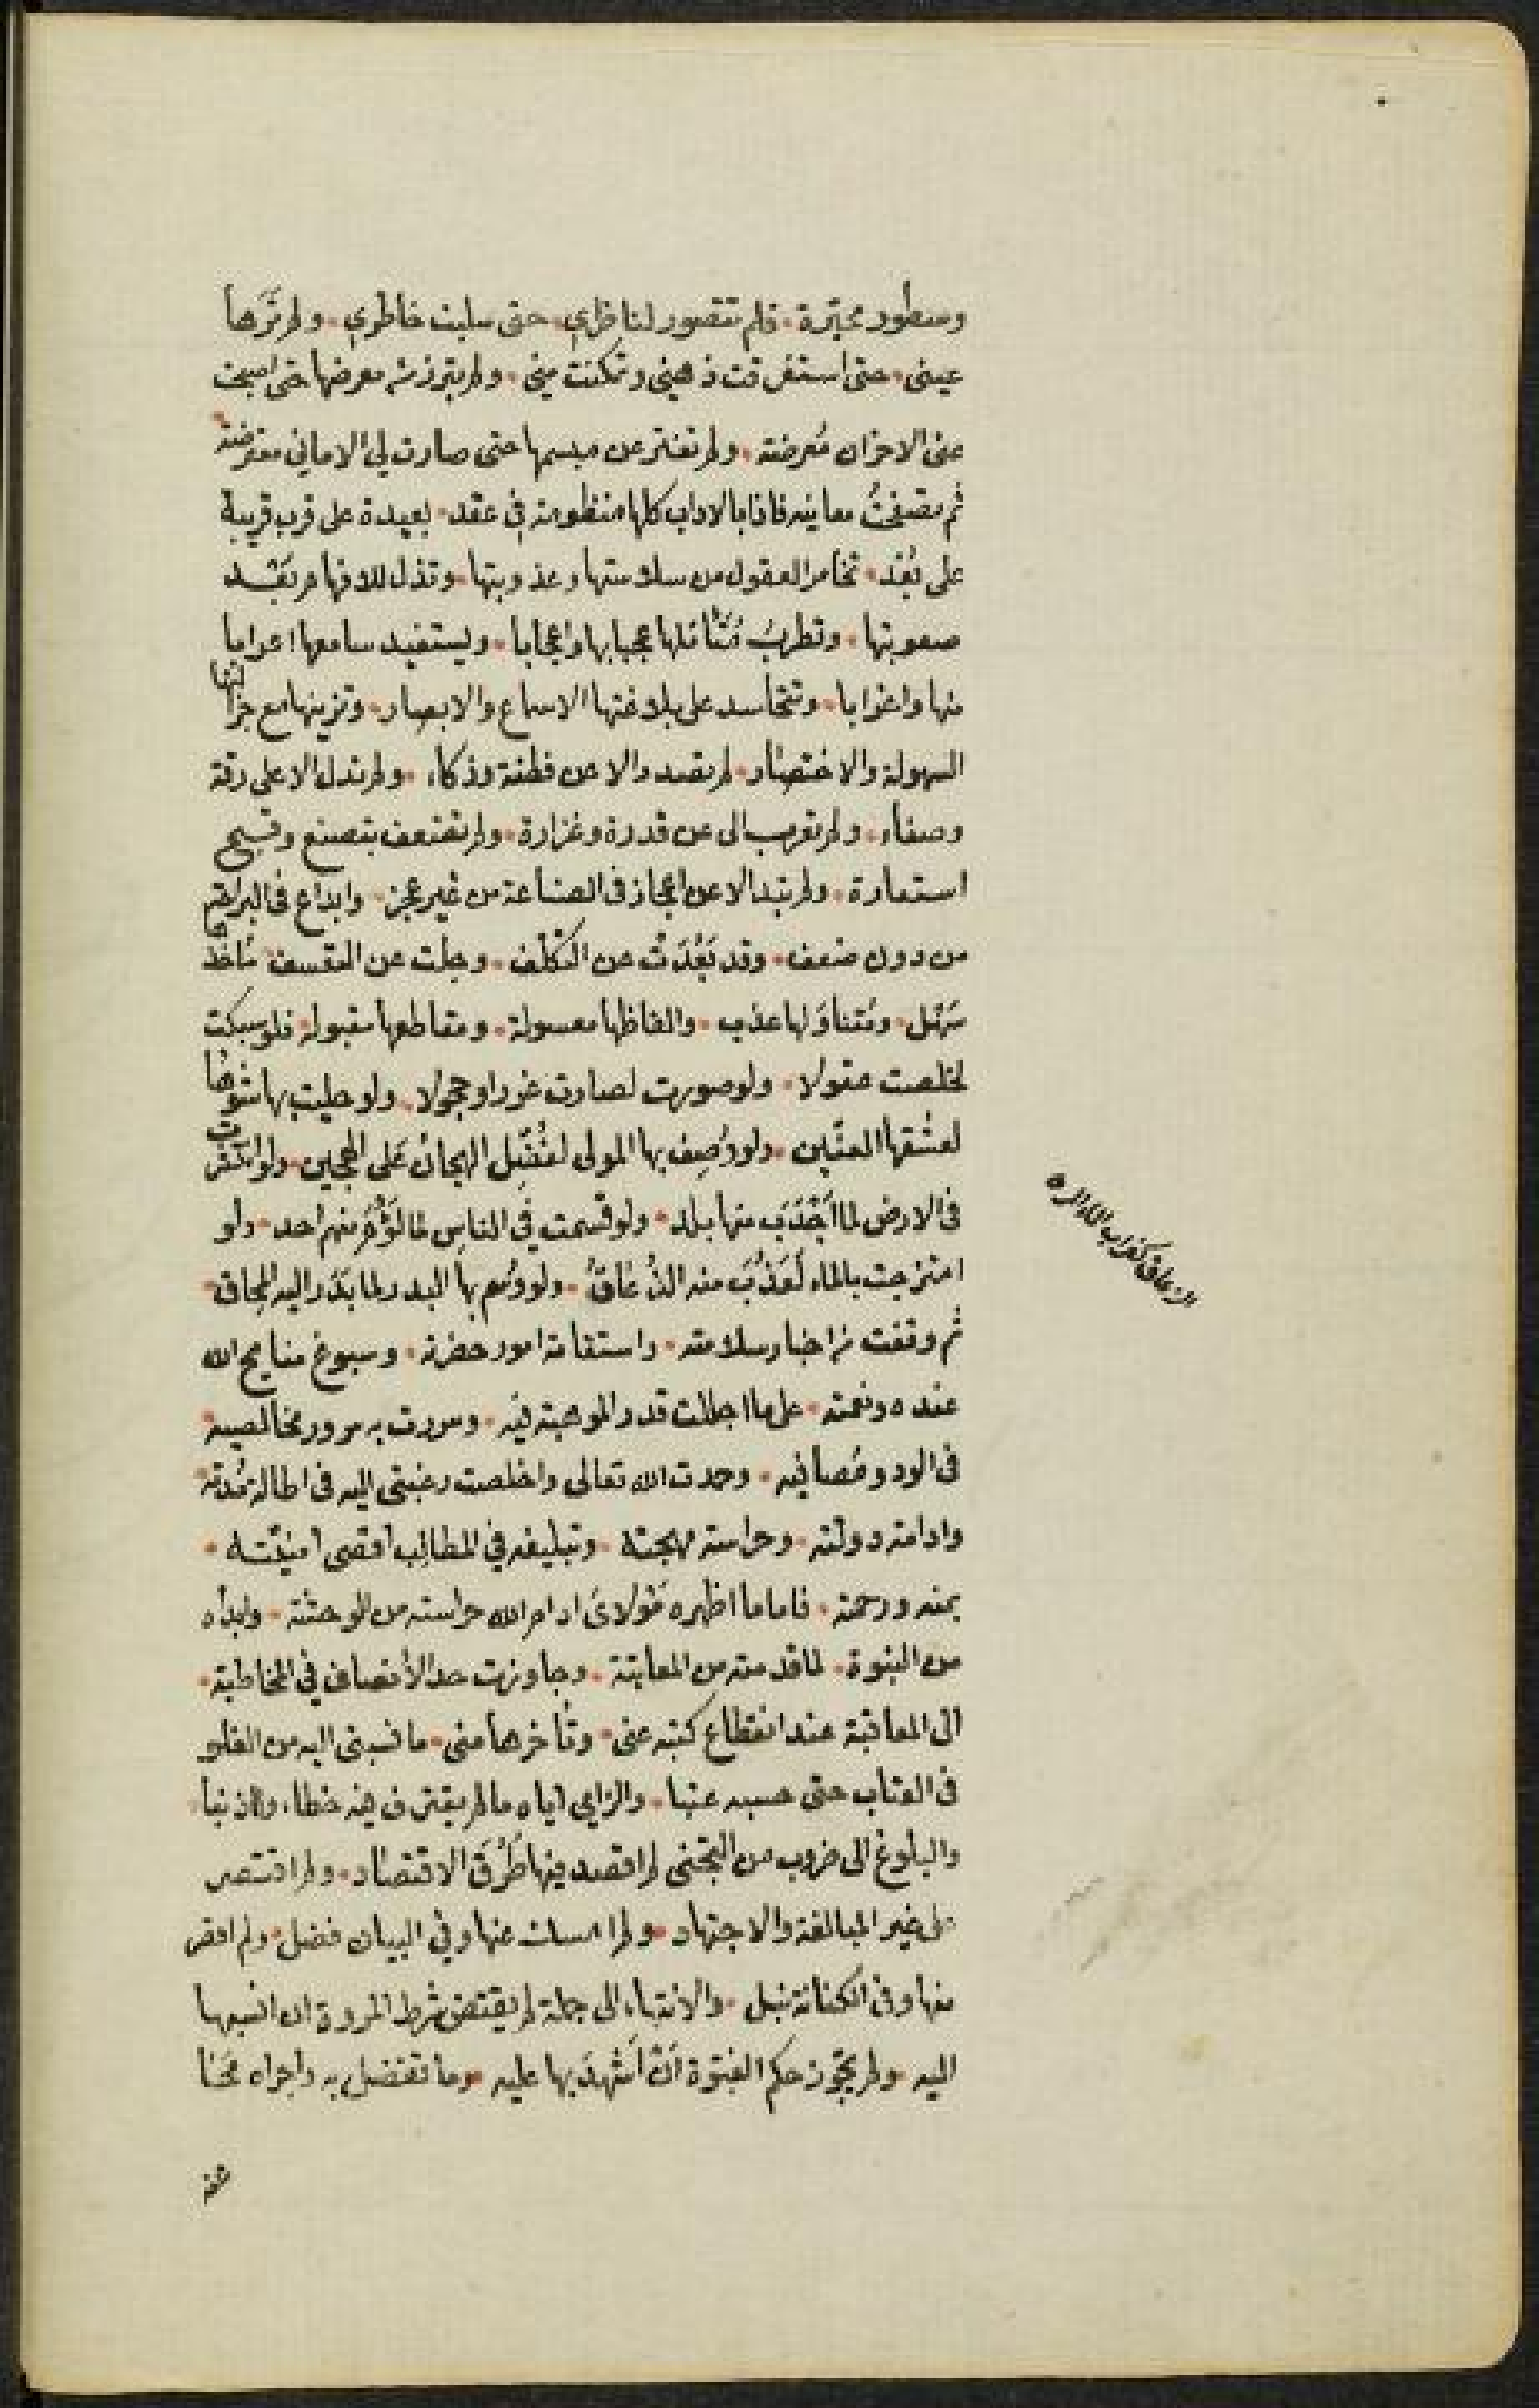 وسطور محبّرة فلم تتصور لناظري حتى سلبت خاطري ولم تَرَها
عينى حتى استغرقت ذهني وتمكنت مني ولم يبرز معرضها حتى اصبحت
عنى الاحزان مُعرضة ولم تفتر عن مبسمها حتى صارت لي الاماني معترضة
ثم تصفحتُ معانيه فاذا بالاداب كلها منظومة في عقد بعيدة على قرب قريبة
على بُعْد تخامر العقول من سلامتها وعذوبتها وتذل للافهام بَعْد
صعوبتها وتطربُ مُتأملها عجبا بها واعجابا ويستفيد سامعها اعراما
منها واغرابا وتتحاسد على بلاغتها الاسماع والابصار وتزينها مع جزالتها
السهولة والاختصار لم تصدر الا عن فطنة وذكاء ولم تدل الا على رقة
وصفاء ولم تعرب الى عن قدرة وغزارة ولم تضعف بتصنع وقبيح
استعارة ولم تبد الا عن اعجاز فى الصناعة من غير عجز وابداع فى البراعة
من دون ضعف وقد بَعُدَتْ عن التكلّف وجلت عن التعسف مأخذها
سَهْل ومُتناوَلها عذب والفاظها معسولة ومقاطعها مقبولة فلو سبكت
لخلصت عقولا ولو صورت لصارت غررا وحجولا ولو حليت بها شوها
لعشقها العنّين ولو وُصِف بها المولى لفُضِّل الهجانُ عَلى الهجين ولو انتشرت
فى الارض لما اَجْدَبَ منها بلد ولو قسمت في الناس لما لَؤُمَ منهم احد ولو
امتزجت بالماء لَعَذُبَ منه الذُعَاقُ ولو وُسم بها البدر لما بَدَر اليه المحاق
الذعاق كغراب الماء المر ه
ثم وقفت من اخبار سلامته واستقامة امور حضرته وسبوغ منايح الله
عنده ونعمته على ما اجللت قدر الموهبة فيه وسررت به سرور مخالصيه
فى الود ومُصافيه وحمدت الله تعالى واخلصت رغبتى اليه فى اطالة مُدته
وادامة دولته وحراسة مهجته وتبليغه في المطالِب أقصى أمنيّته
بمنه ورحمته فاما ما اظهره مَوْلاىَ ادام الله حراسته من الوحشة وابداه
من النبوة لما قدمته من المعاتبة وجاوزت حد الأنصاف في المخاطبة
الى المعاتبة عند انقطاع كتبه عنى وتأخرها منى ما نسبنى اليه من الغلو
فى العتاب حتى حسبه عتبا والزامي اياه ما لم يقترف فيه خطاء ولا ذنبا
والبلوغ الى ضروب من التجنى لم اقصد فيها طُرُقَ الاقتصاد ولم اقتصر
على غير المبالغة والاجتهاد ولم امسك عنها وفي البيان فضل ولم اقصر
منها وفى الكنانة نبل والانتهاء الى جملة لم يقتض شرط المروة ان انسبها
اليه ولم يجوز حكم الفتوة اَنْ اَشهدَ بها عليه وما تفضل به واجراه مَجنا
عنه